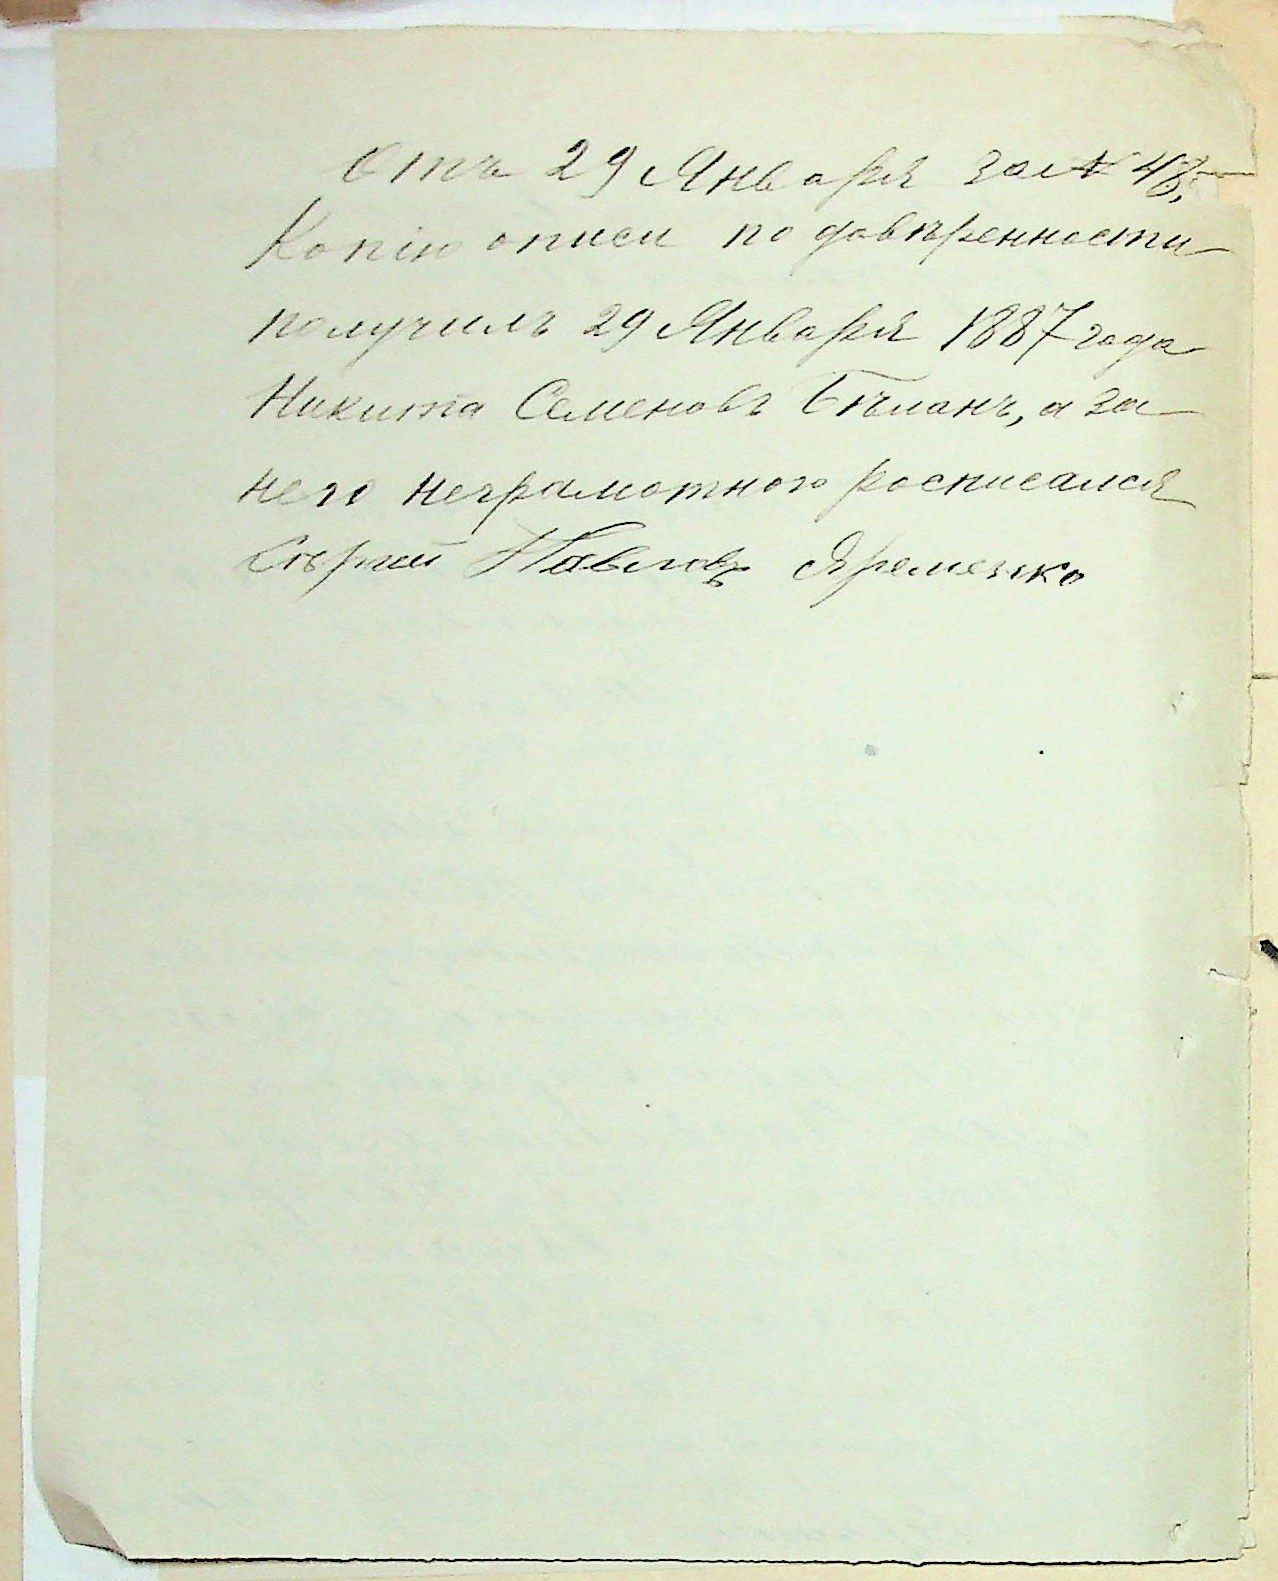 Отъ 29 Января за №
Копію описи по довѣренности
получилъ 29 Января 1887 года
Никита Семеновъ Бѣланъ, а за
него неграмотного росписался
Сергій Павловъ Яременко